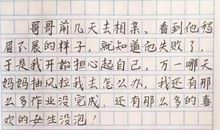 哥哥前几天去相亲,看到他愁
眉不展的样子,就知道他失败了,
于是我开始担心起自己,万一哪天
妈妈抽风拉我去怎么办,我还有那
么多作业没完成,还有那么多的喜
欢的女生没泡!